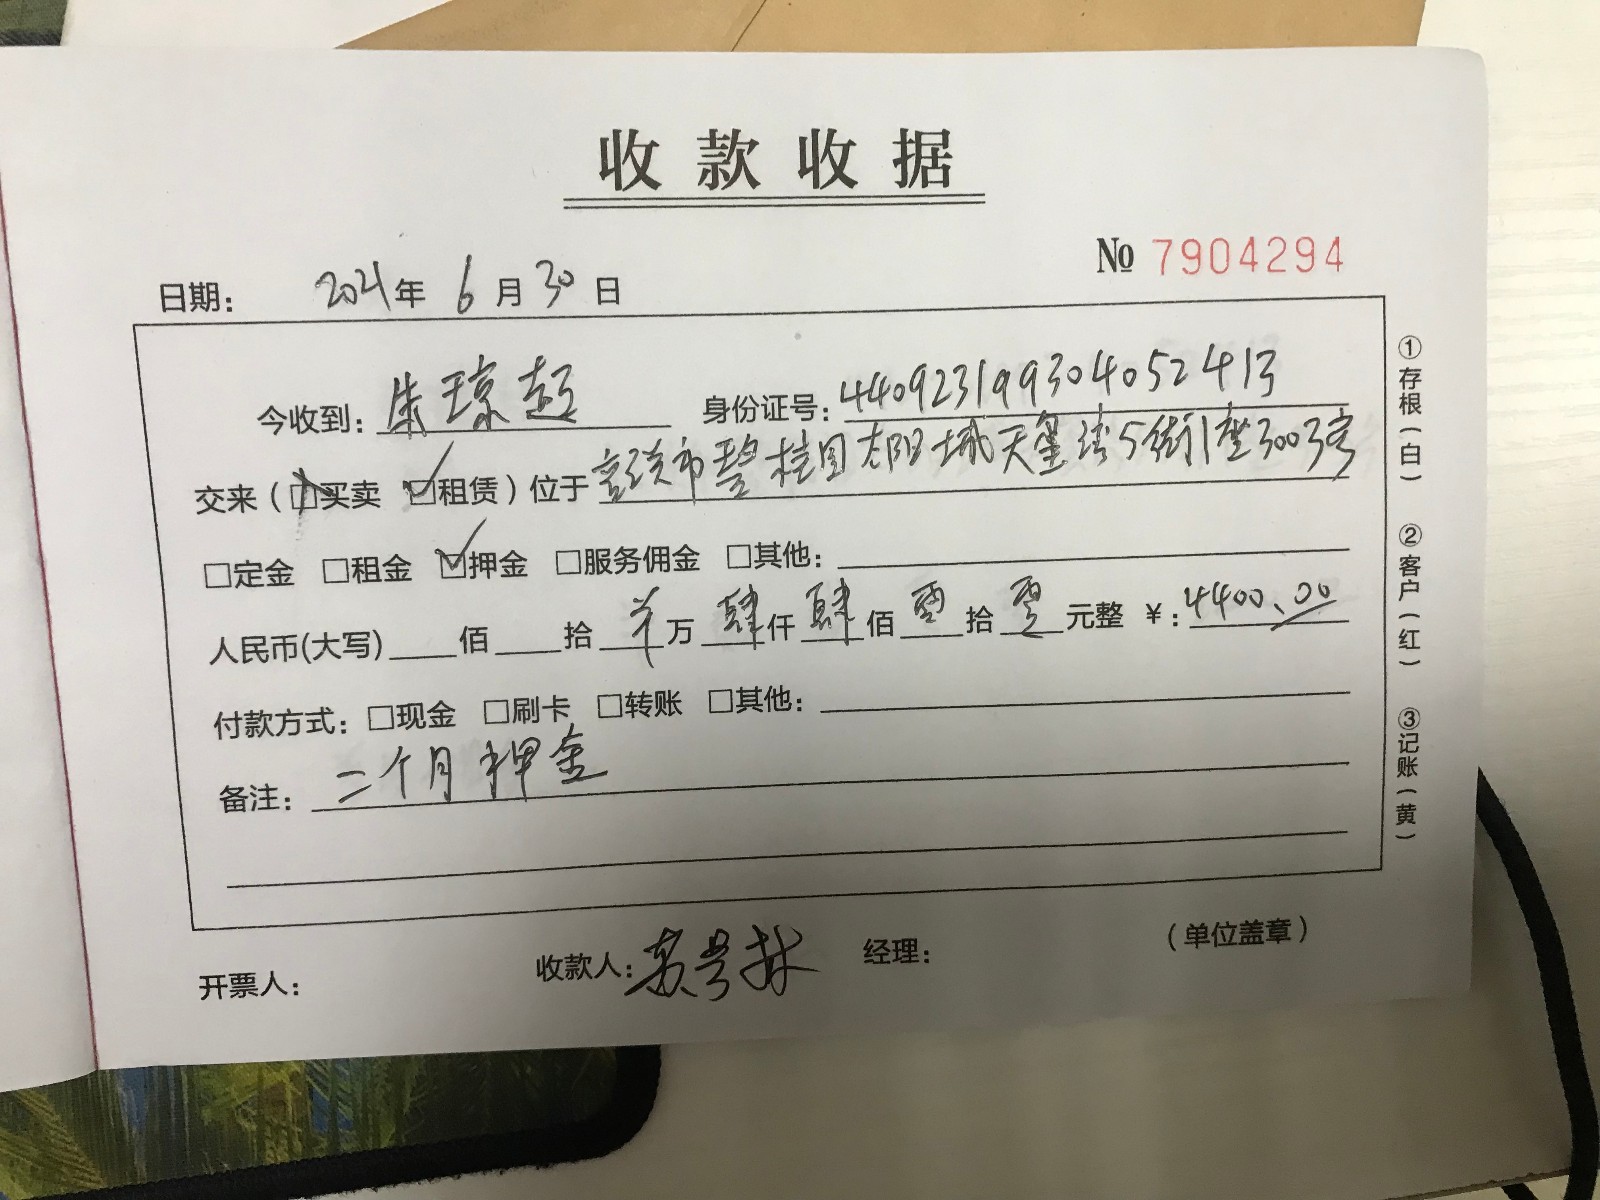 收款收据
№ 7904294
日期： 2021年 6月 30日
今收到： 朱琼超 身份证号：440923199304052413
交来（□买卖 ☑租赁）位于 市碧桂园太阳城天玺湾5街1座3003房
□定金 □租金 ☑押金 □服务佣金 □其他：
人民币(大写) 佰 拾 万 肆仟 肆佰 零拾 零元整 ￥：4400.00
付款方式：□现金 □刷卡 □转账 □其他：
备注： 二个月押金
开票人： 收款人： 经理： （单位盖章）
①存根（白） ②客户（红） ③记账（黄）